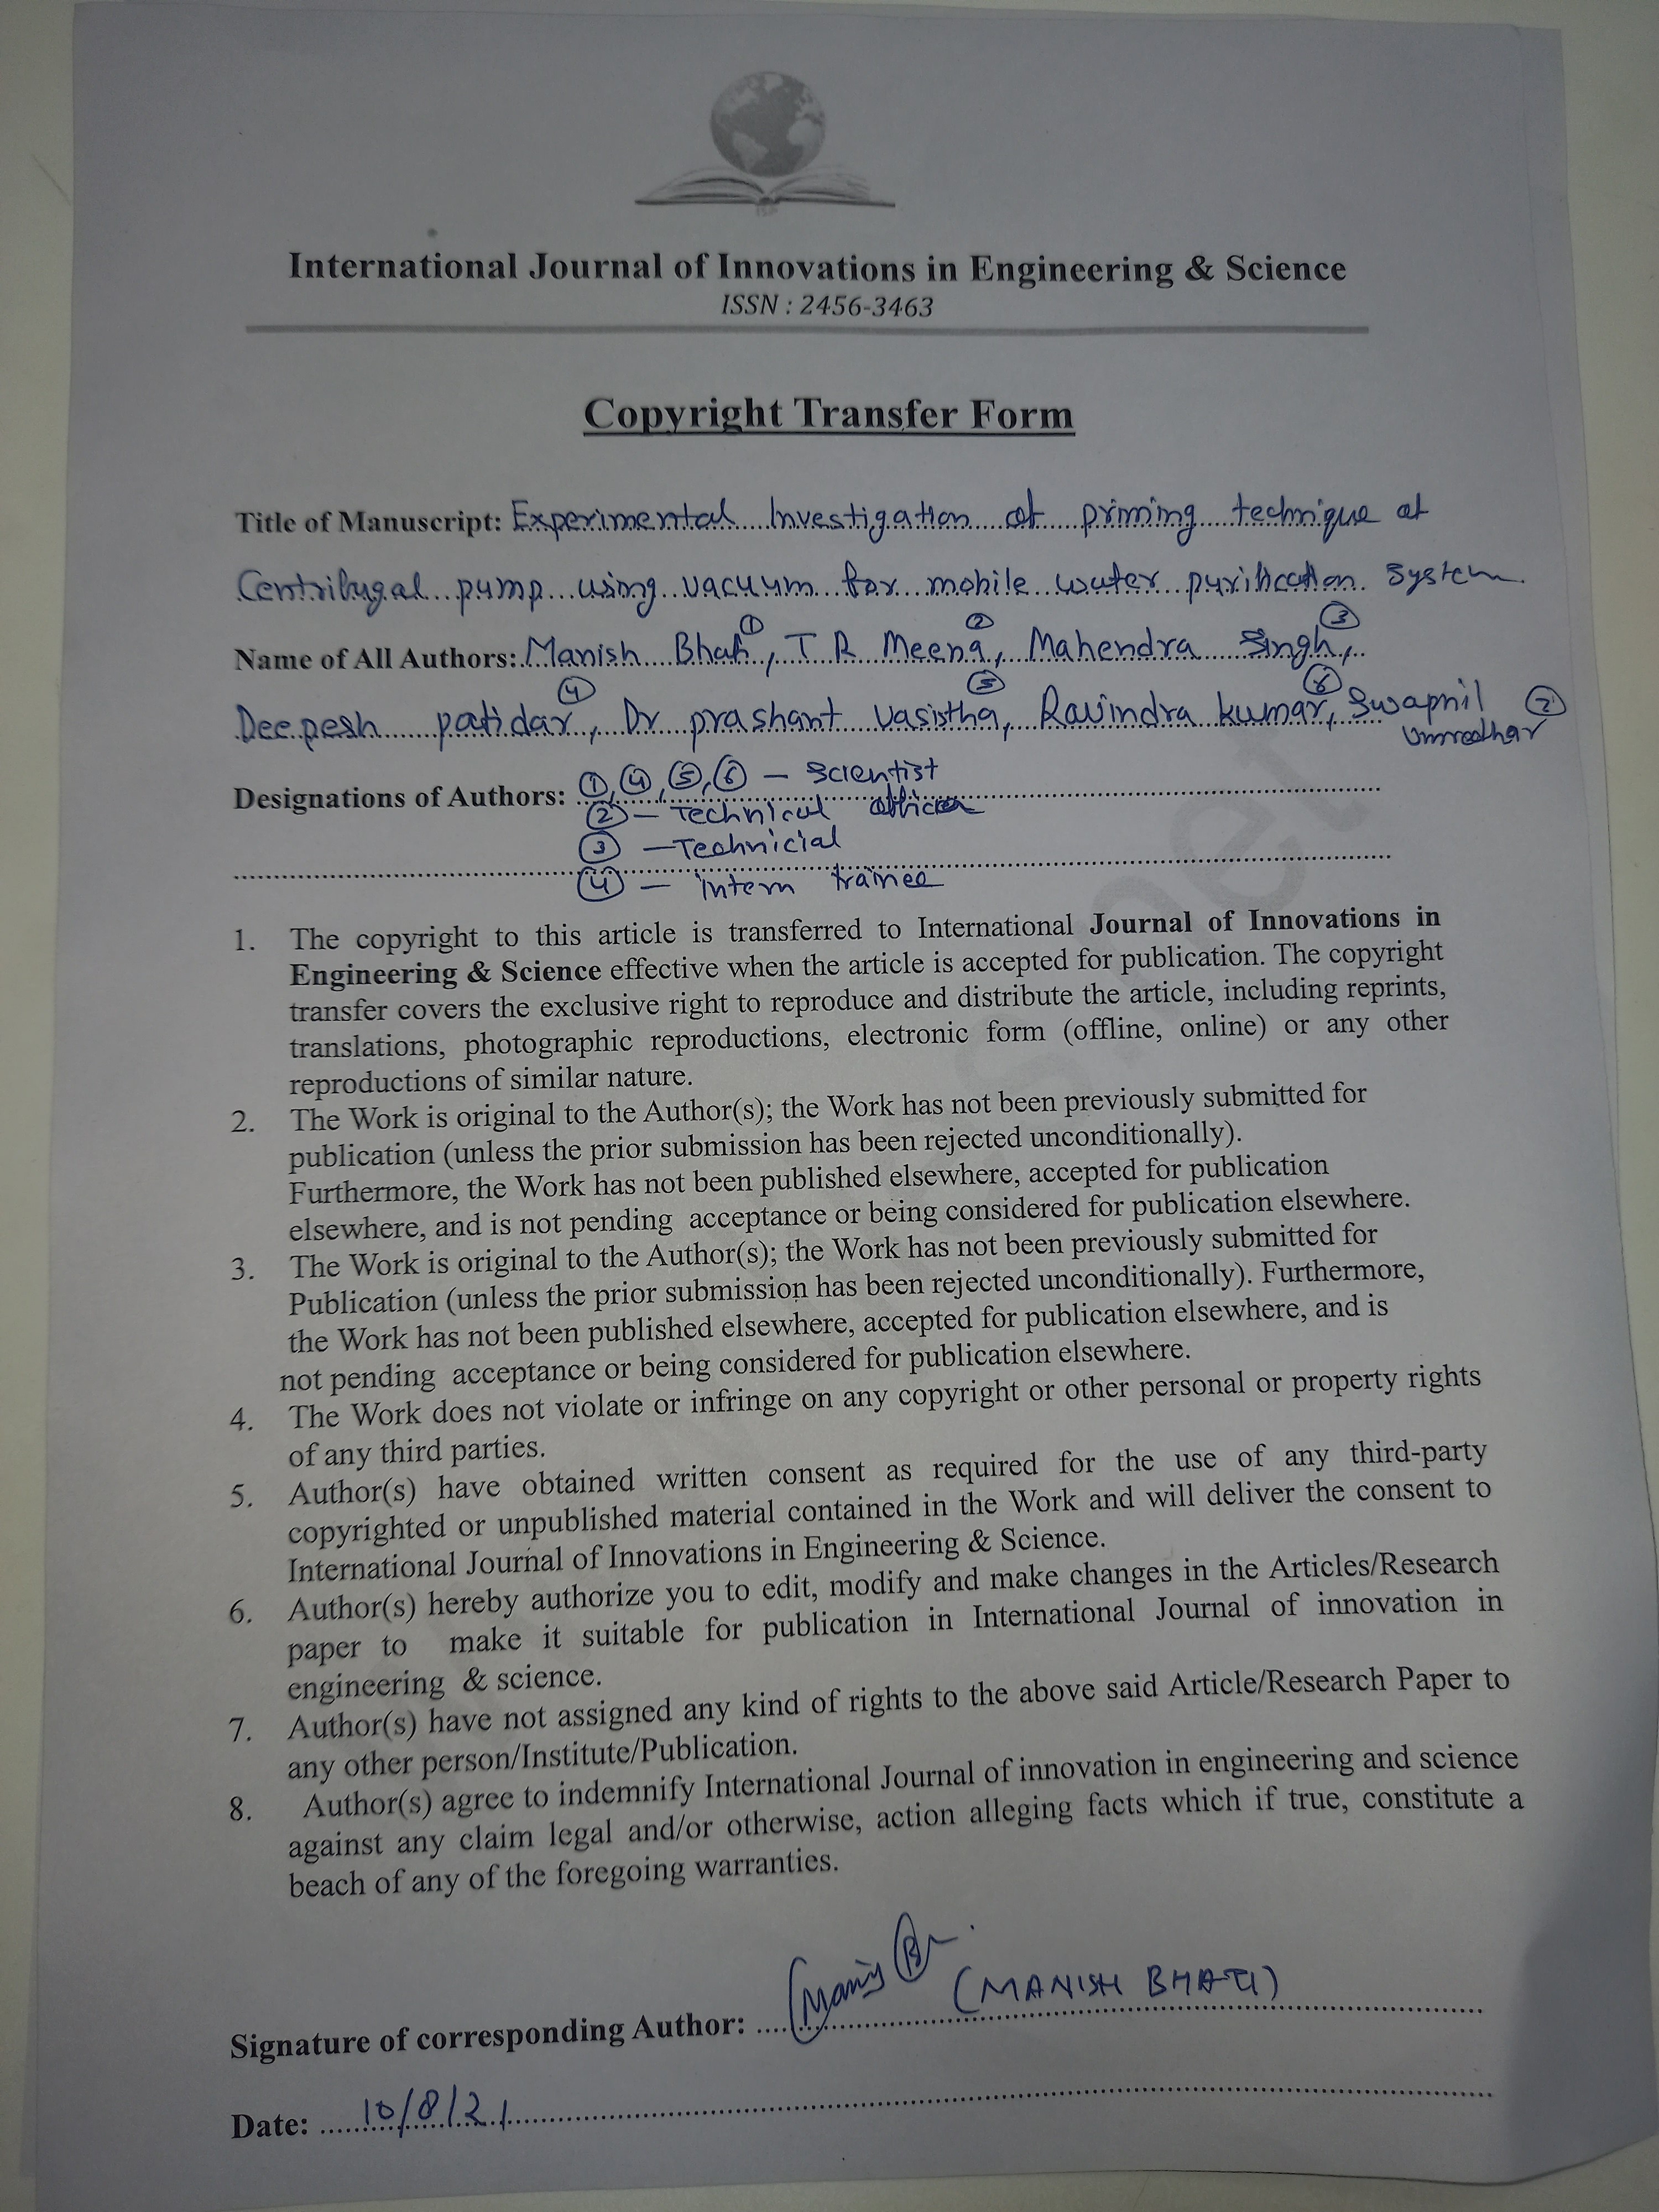 International Journal of Innovations in Engineering & Science
ISSN : 2456-3463
Copyright Transfer Form
Title of Manuscript: Experimental Investigation of priming technique of
Centrifugal pump using vacuum for mobile water purification system
Name of All Authors: Manish Bhati ①, T R Meena ②, Mahendra Singh ③,
Deepesh patidar ④, Dr prashant vasistha ⑤, Ravindra kumar ⑥, Swapnil ⑦
Designations of Authors: ①, ④, ⑤, ⑥ — Scientist
② — Technical officer
③ — Technicial
④ — intern trainee
1. The copyright to this article is transferred to International Journal of Innovations in
Engineering & Science effective when the article is accepted for publication. The copyright
transfer covers the exclusive right to reproduce and distribute the article, including reprints,
translations, photographic reproductions, electronic form (offline, online) or any other
reproductions of similar nature.
2. The Work is original to the Author(s); the Work has not been previously submitted for
publication (unless the prior submission has been rejected unconditionally).
Furthermore, the Work has not been published elsewhere, accepted for publication
elsewhere, and is not pending acceptance or being considered for publication elsewhere.
3. The Work is original to the Author(s); the Work has not been previously submitted for
Publication (unless the prior submission has been rejected unconditionally). Furthermore,
the Work has not been published elsewhere, accepted for publication elsewhere, and is
not pending acceptance or being considered for publication elsewhere.
4. The Work does not violate or infringe on any copyright or other personal or property rights
of any third parties.
5. Author(s) have obtained written consent as required for the use of any third-party
copyrighted or unpublished material contained in the Work and will deliver the consent to
International Journal of Innovations in Engineering & Science.
6. Author(s) hereby authorize you to edit, modify and make changes in the Articles/Research
paper to make it suitable for publication in International Journal of innovation in
engineering & science.
7. Author(s) have not assigned any kind of rights to the above said Article/Research Paper to
any other person/Institute/Publication.
8. Author(s) agree to indemnify International Journal of innovation in engineering and science
against any claim legal and/or otherwise, action alleging facts which if true, constitute a
beach of any of the foregoing warranties.
Signature of corresponding Author: (MANISH BHATI)
Date: 10/8/21